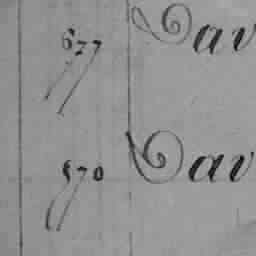 677 Dav
570 Dav